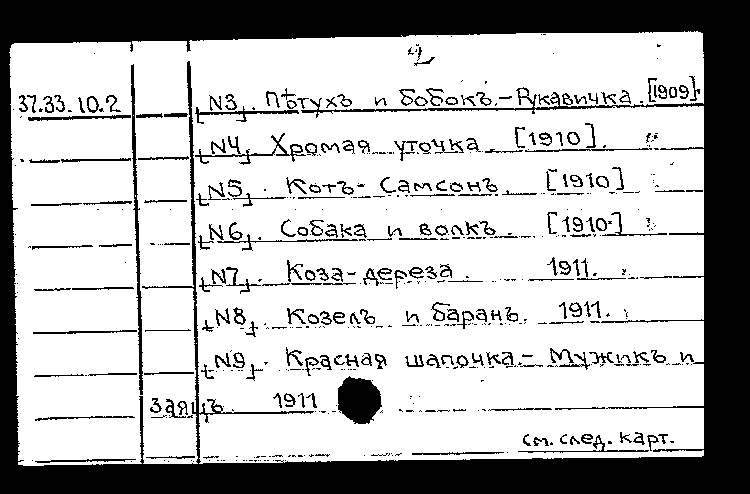 2
37.33.10.2 [N3]. Пѣтухъ и бобокъ.-Рукавичка. [1909].
[N4]. Хромая уточка. [1910].
[N5]. Котъ-Самсонъ. [1910]
[N6]. Собака и волкъ. [1910]
[N7]. Коза-дереза. 1911.
[N8]. Козелъ и баранъ. 1911.
[N9]. Красная шапочка.- Мужикъ и
Заяцъ. 1911
см. след. карт.